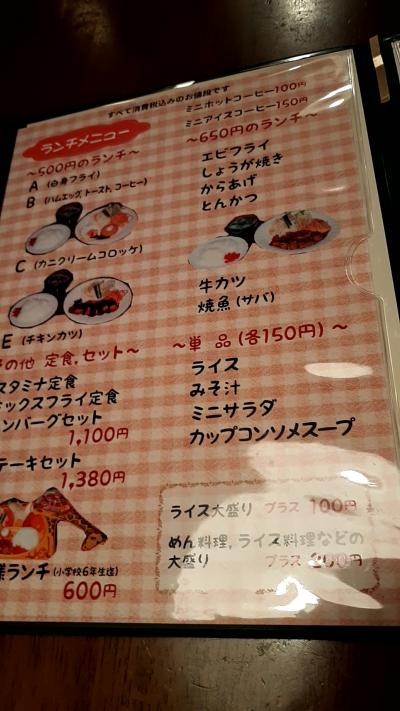 すべて消費税込みのお値段です
ランチメニュー
～500円のランチ～
A (白身フライ)
B (ハムエッグ,トースト,コーヒー)
C (カニクリームコロッケ)
E (チキンカツ)
の他 定食,セット～
スタミナ定食
ックスフライ定食
ンバーグセット
1,100円
テーキセット
1,380円
ランチ (小学校6年生迄)
600円
ミニホットコーヒー100円
ミニアイスコーヒー150円
～650円のランチ～
エビフライ
しょうが焼き
からあげ
とんかつ
牛カツ
焼魚 (サバ)
～単 品 (各150円) ～
ライス
みそ汁
ミニサラダ
カップコンソメスープ
ライス大盛り プラス 100円
めん料理,ライス料理などの
大盛り プラス 200円